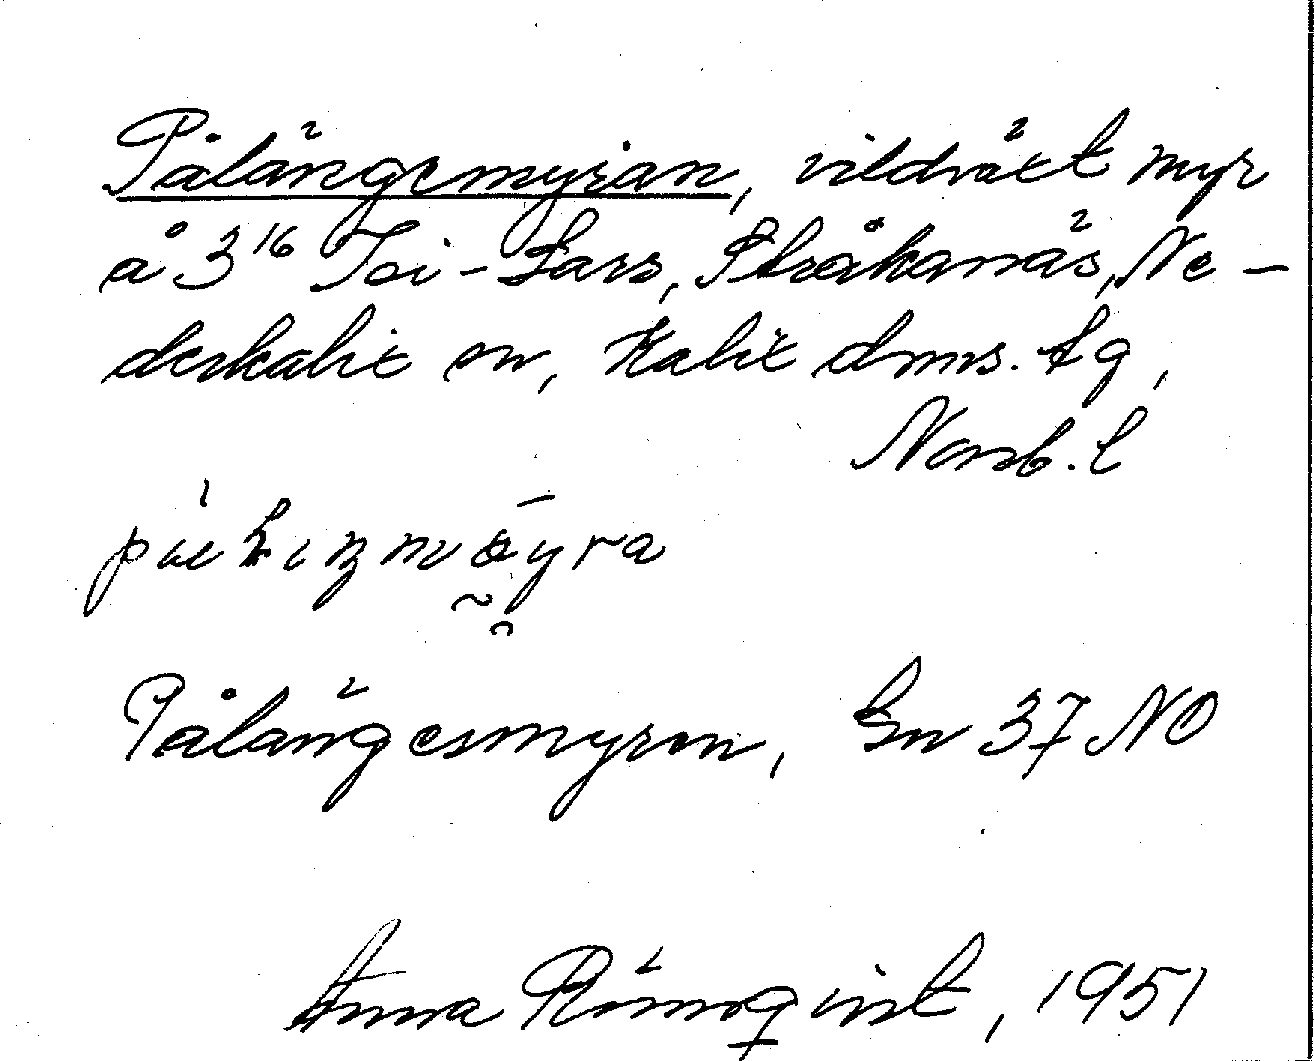 Pålängemyran, vildväxt myr
å 3¹⁶ Toi-Lars, Stråkanäs, Ne-
derkalix sn, Kalix dms. tg,
Norrb. l
Pålängesmyren, Gn 37 NO
Anna Rönnqvist, 1951